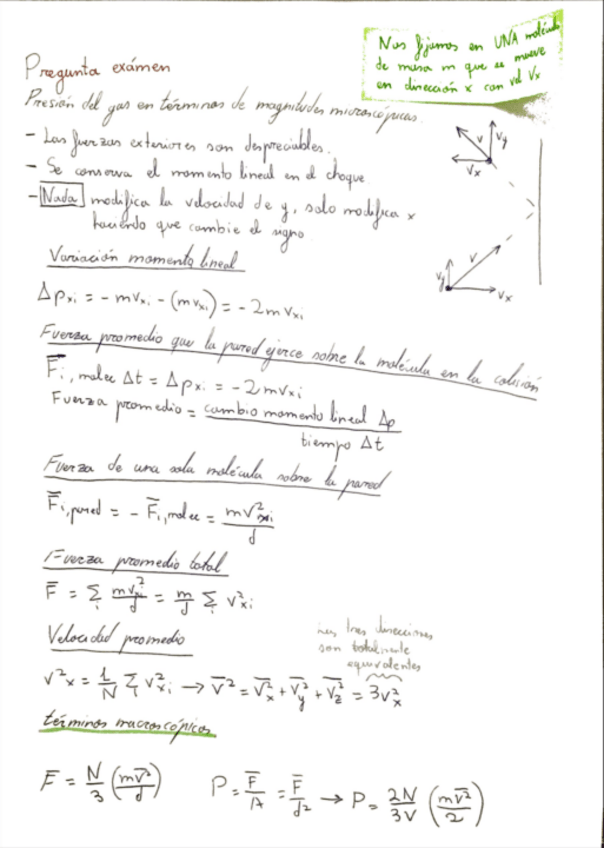 Nos fijamos en UNA molécula
de masa m que se mueve
en dirección x con vel Vx
Pregunta exámen
Presión del gas en términos de magnitudes microscópicas.
- Las fuerzas exteriores son despreciables.
- Se conserva el momento lineal en el choque
- Nada modifica la velocidad de y, solo modifica x
haciendo que cambie el signo
v Vy
Vx
Vy v
Vx
Variación momento lineal
Δpxi = -mvxi - (mvxi) = -2mvxi
Fuerza promedio que la pared ejerce sobre la molécula en la colisión
F̄i, molec Δt = Δpxi = -2mvxi
Fuerza promedio = cambio momento lineal Δp / tiempo Δt
Fuerza de una sola molécula sobre la pared
F̄i, pared = - F̄i, molec = mv²xi / d
Fuerza promedio total
F̄ = Σi mv²xi / d = m/d Σi v²xi
Velocidad promedio
Las tres direcciones
son totalmente
equivalentes
v²x = 1/N Σi v²xi → v̄² = v̄x² + v̄y² + v̄z² = 3v̄x²
términos macroscópicos
F̄ = N/3 (mv̄²/d) P = F̄/A = F̄/d² → P = 2N/3V (mv̄²/2)